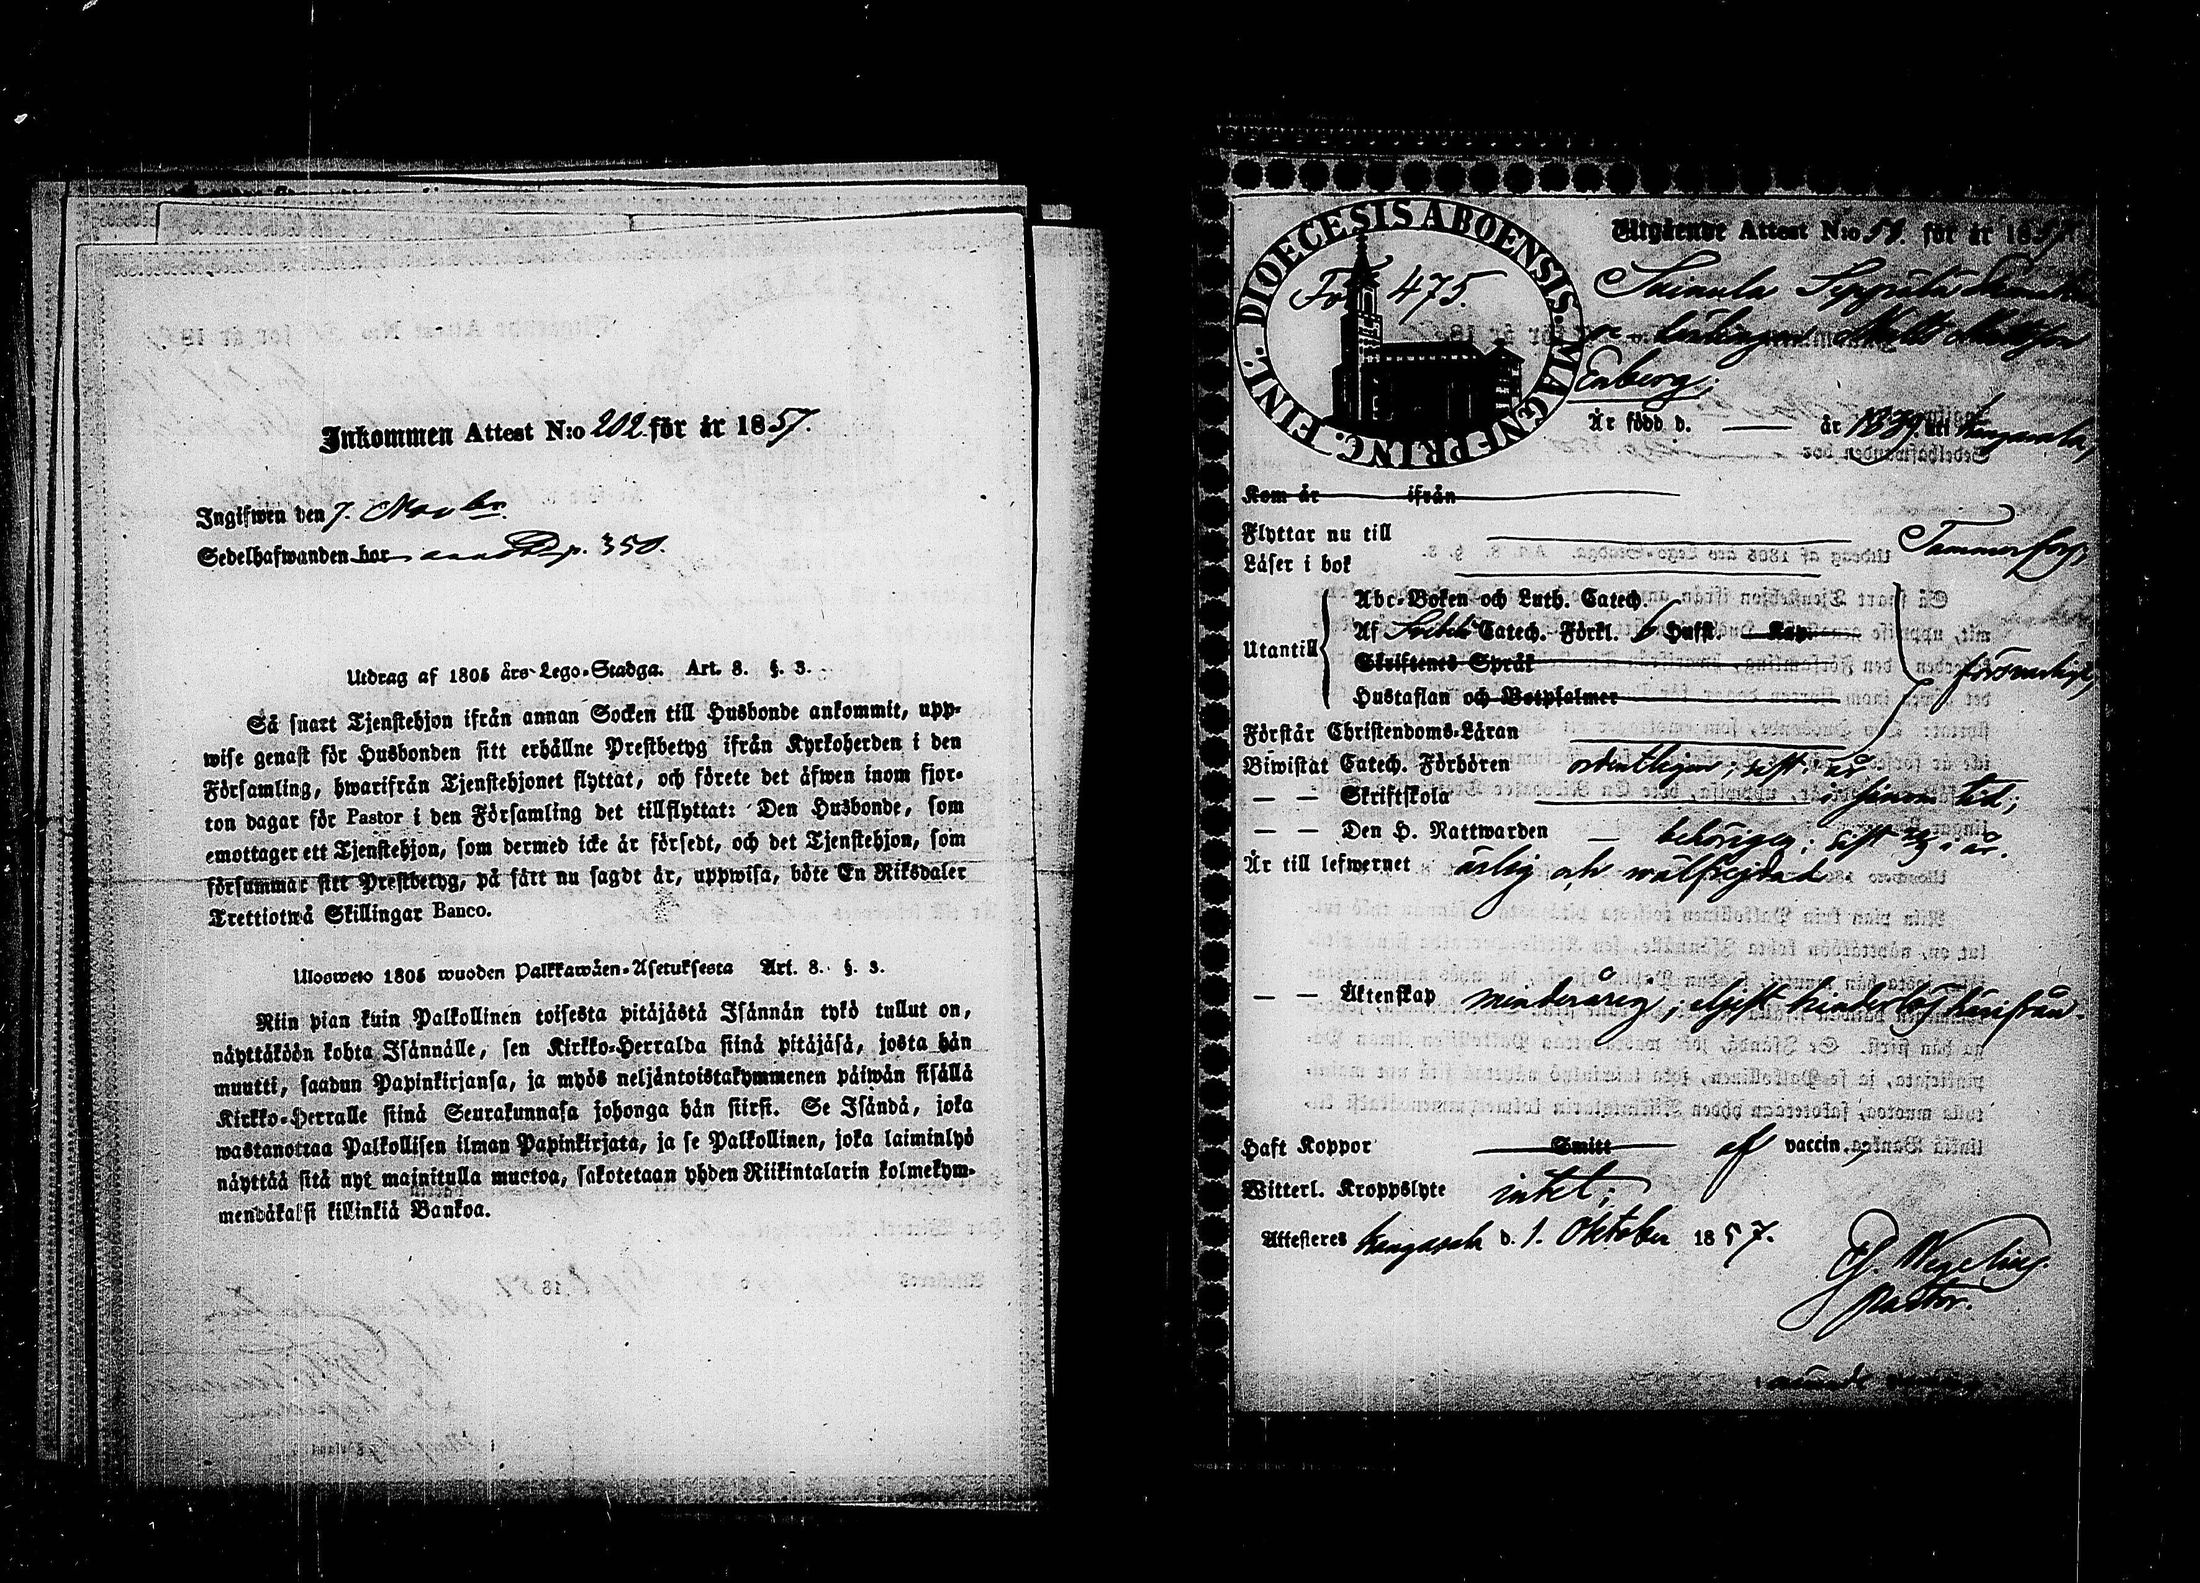 Inkommen Attest N:o 202 för år 1857.
Ingifwen den 7. Novbr
Sedelhafwanden bor p. 350.
Utdrag af 1805 års Lego-Stadga. Art. 8. §. 3.
Så snart Tjenstehjon ifrån annan Socken till Husbonde ankommit, upp-
wise genast för Husbonden sitt erhållne Prestbetyg ifrån Kyrkoherden i den
Församling, hwarifrån Tjenstehjonet flyttat, och förete det äfwen inom fjor-
ton dagar för Pastor i den Församling det tillflyttat: Den Husbonde, som
emottager ett Tjenstehjon, som dermed icke är försedt, och det Tjenstehjon, som
försummar sitt Prestbetyg, på sätt nu sagdt är, uppwisa, böte En Riksdaler
Trettiotwå Skillingar Banco.
Ulosweto 1805 wuoden Palkkawäen-Asetuksesta Art. 8. §. 3.
Niin pian kuin Palkollinen toisesta pitäjästä Isännän tykö tullut on,
näyttäköön kohta Isännälle, sen Kirkko-Herralda siinä pitäjäsä, josta hän
muutti, saadun Papinkirjansa, ja myös neljäntoistakymmenen päiwän sisällä
Kirkko-Herralle siinä Seurakunnasa johonga hän siirsi. Se Isändä, joka
wastanottaa Palkollisen ilman Papinkirjata, ja se Palkollinen, joka laiminlyö
näyttää sitä nyt mainitulla muotoa, sakotetaan yhden Riikintalarin kolmekym-
mendäkaksi killinkiä Bankoa.
DIOECESIS ABOENSIS. MAGNI PRINC. FINL.
Fol 475.
Utgående Attest N:o 51. för år 1857
lärlingen Matts Mattsson
Enberg;
Är född d. — år 1839 uti Kangasala,
Kom år ifrån
Flyttar nu till Tammerfors
Läser i bok
Utantill
Abc-Boken och Luth. Catech.
Af Svebelii Catech. Förkl. 6 Hufst. Kap.
Skriftenes Språk
Hustaflan och Botpsalmer
försvarligt,
Förstår Christendoms-Läran
Biwistat Catech. Förhören ordentligen; sist i år
— — Skriftskola i sinom tid;
— — Den H. Nattwarden behörigen; sist i år.
Är till lefwernet ärlig och wälfrejdad
— — Äktenskap minderårig; eljest hinderlös härifrån.
Haft Koppor Smitt af vaccin,
Witterl. Kroppslyte intet;
Attesteres Kangasala d. 1. Oktober 1857.
Wegelius.
Pastor.